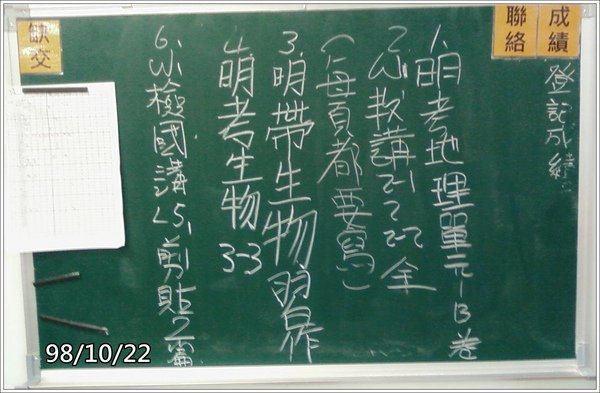 成績
聯絡
登記成績:
1.明考地理單元一B卷
2.W:數講2-1~2-2全
(每頁都要寫)
3.明帶生物習作
4.明考生物3-3
6.W:檢國講L5,剪貼2篇
缺交
98/10/22